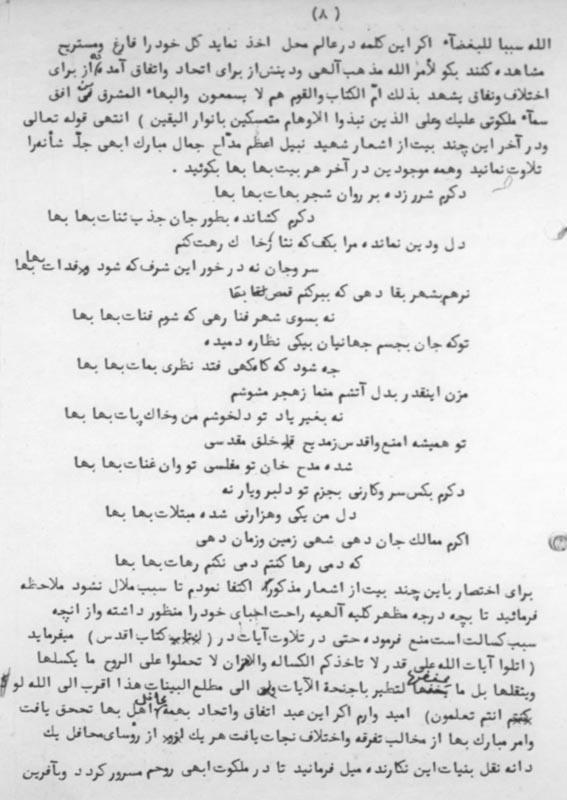 (٨)
الله سببا للبغضآء اکر این کلمه در عالم محل اخذ نماید کل خود را فارغ ومستریح
مشاهده کنند بکو لأمر الله مذهب آلهی ودینش از برای اتحاد واتفاق آمده نه از برای
اختلاف ونفاق یشهد بذلك امّ الکتاب والقوم هم لا یسمعون والبهاء المشرق من افق
سمآء ملکوتی علیك وعلی الذین نبذوا الاوهام متمسکین بانوار الیقین ) انتهی قوله تعالی
ودر آخر این چند بیت از اشعار شهید نبیل اعظم مدّاح جمال مبارك ابهی جلّ شأنه را
تلاوت نمائید وهمه موجودین در آخر هر بیت بها بها بکوئید .
دکرم شرر زده بر روان شجر بهات بها بها
دکرم کشانده بطور جان جذب ثنات بها بها
دل ودین نمانده مرا بکف که نثار خاك رهت کنم
سر وجان نه در خور این شرف که شود فدات بها بها
نرهم بشهر بقا دهی که ببرکنم قمص لقا
نه بسوی شهر فنا رهی که شوم فنات بها بها
توکه جان بجسم جهانیان بیکی نظاره دمیده
چه شود که کاهکهی فتد نظری بمات بها بها
مزن اینقدر بدل آتشم منما زهجر مشوشم
نه بغیر یاد تو دلخوشم من وخاك پات بها بها
تو همیشه امنع واقدس زمدیح خلق مقدسی
شده مدح خان تو مفلسی تو وان غنات بها بها
دکرم بکس سر وکارنی بجزم تو دلبر ویار نه
دل من یکی وهزارنی شده مبتلات بها بها
اکرم ممالك جان دهی شهی زمین وزمان دهی
که دمی رها کنتم دمی نکنم رهات بها بها
برای اختصار باین چند بیت از اشعار مذکوره اکتفا نمودم تا سبب ملال نشود ملاحظه
فرمائید تا بچه درجه مظهر کلیه آلهیه راحت احبای خود را منظور داشته واز انچه
سبب کسالت است منع فرموده حتی در تلاوت آیات در ( کتاب اقدس ) میفرماید
( اتلوا آیات الله علی قدر لا تاخذکم الکساله والاحزان لا تحملوا علی الروح ما یکسلها
ویثقلها بل ما یخففها لتطیر باجنحة الآیات الی مطلع البینات هذا اقرب الی الله لو
انتم تعلمون) امید وارم اکر این عید اتفاق واتحاد بهمه محافل اهل بها تحقق یافت
وامر مبارك بها از مخالب تفرقه واختلاف نجات یافت هر یك از رؤسای محافل یك
دانه نقل بنیات این نکارنده میل فرمانید تا در ملکوت ابهی روحم مسرور کردد وبآفرین